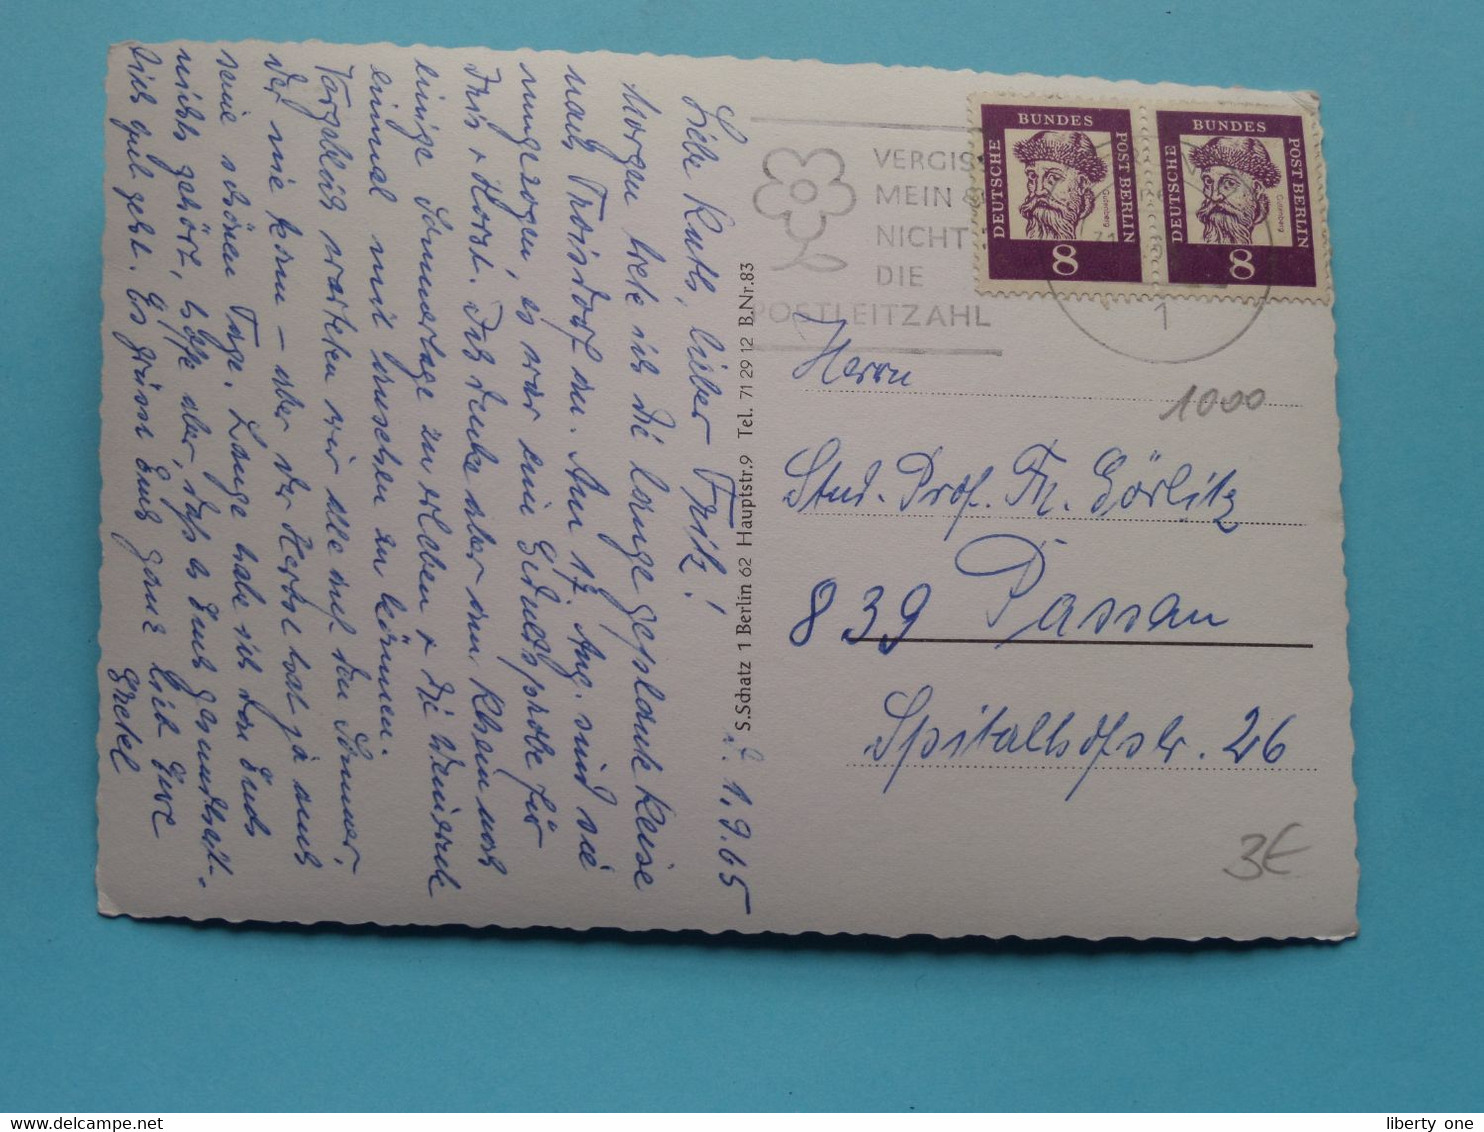 B. 1.9.65
Liebe Ruth, lieber Fritz!
Morgen trete ich die lange geplante Reise
nach Troisdorf an. Am 17. Aug. sind sie
umgezogen, es war eine Geduldsprobe für
Iris + Horst. Ich denke aber am Rhein noch
einige Sommertage zu erleben + die
einmal mit zu können.
Vergeblich warteten wir alle auf den Sommer,
der nie kam – aber der Herbst hat ja auch
seine schönen Tage. Lange habe ich von Euch
nichts gehört, hoffe aber, daß es Euch gesundheit-
lich gut geht. Es grüßt Euch ganz lieb Eure
Gretel
S.Schatz 1 Berlin 62 Hauptstr.9 Tel. 71 29 12 B.Nr.83
VERGISS
MEIN
NICHT
DIE
POSTLEITZAHL
1
DEUTSCHE
BUNDES
POST BERLIN
Gutenberg
8
DEUTSCHE
BUNDES
POST BERLIN
Gutenberg
8
Herrn
1000
Stud. Prof. Fr. Görlitz
839 Passau
Spitalhofstr. 26
3€
liberty one